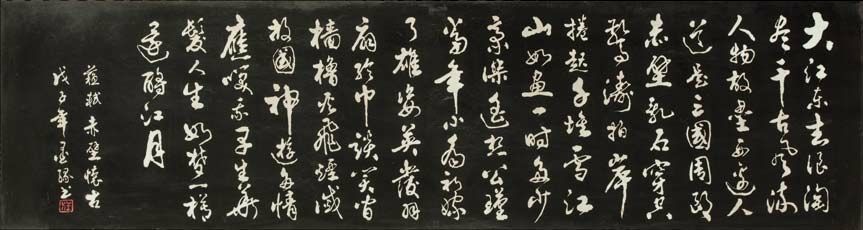 大江東去浪淘
尽千古風流
人物故壘西邊人
道是三國周郎
赤壁乱石穿空
驚濤拍岸
捲起千堆雪江
山如畫一時多少
豪傑遙想公瑾
當年小喬初嫁
了雄姿英發羽
扇綸巾談笑間
檣櫓灰飛煙滅
故國神遊多情
應笑我早生華
髮人生如夢一樽
還酹江月
蘇軾赤壁懷古
戊子年墨缘书